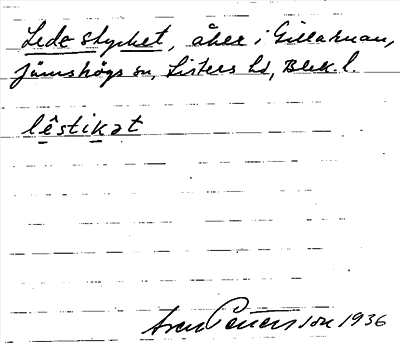 Lede stycket, åker i Gillaruan,
Jämshögs sn, Listers hd, Blek. l.
lêstikət
Petersson 1936